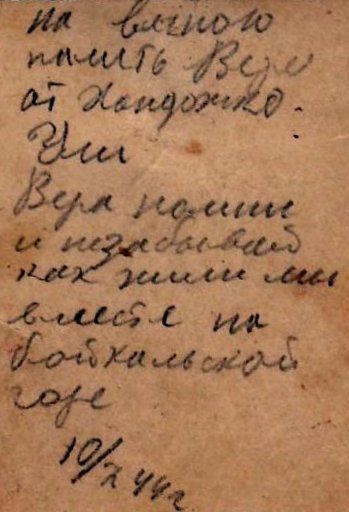 на вечною
память Вере
от Хондожко.
Вера помни
и незабывай
как жили мы
вместе на
бойкальской
горе
10/X 44 г.